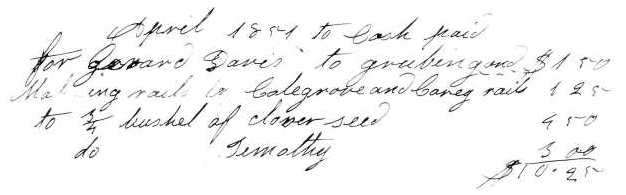 April 1851 to Cash paid
for Gerard Davis to grubing and $1 50
Making rails by Colegrove and Carey rails 1 25
to 3/4 bushel of clover seed 4 50
do Temothy 3 00
$10.25